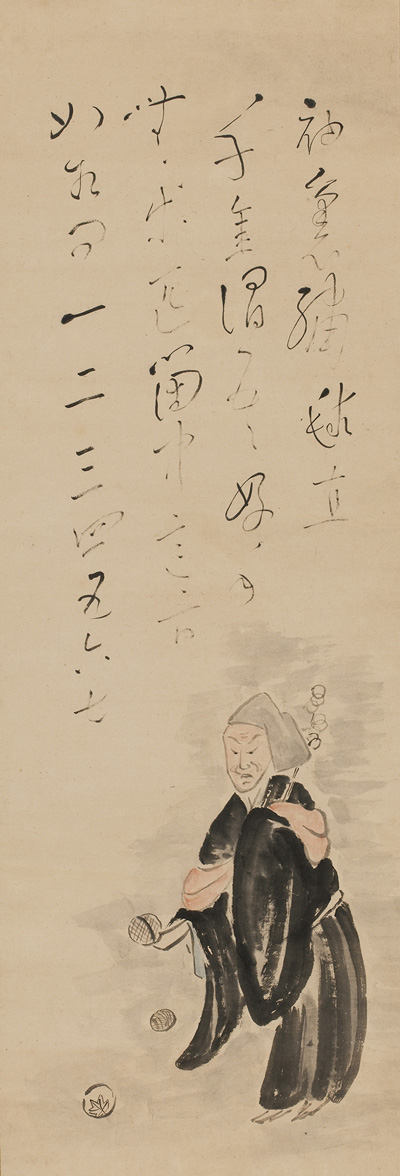 袖裏繡毬直
千金謂好手
無等匹箇中意旨
如相問一二三四五六七